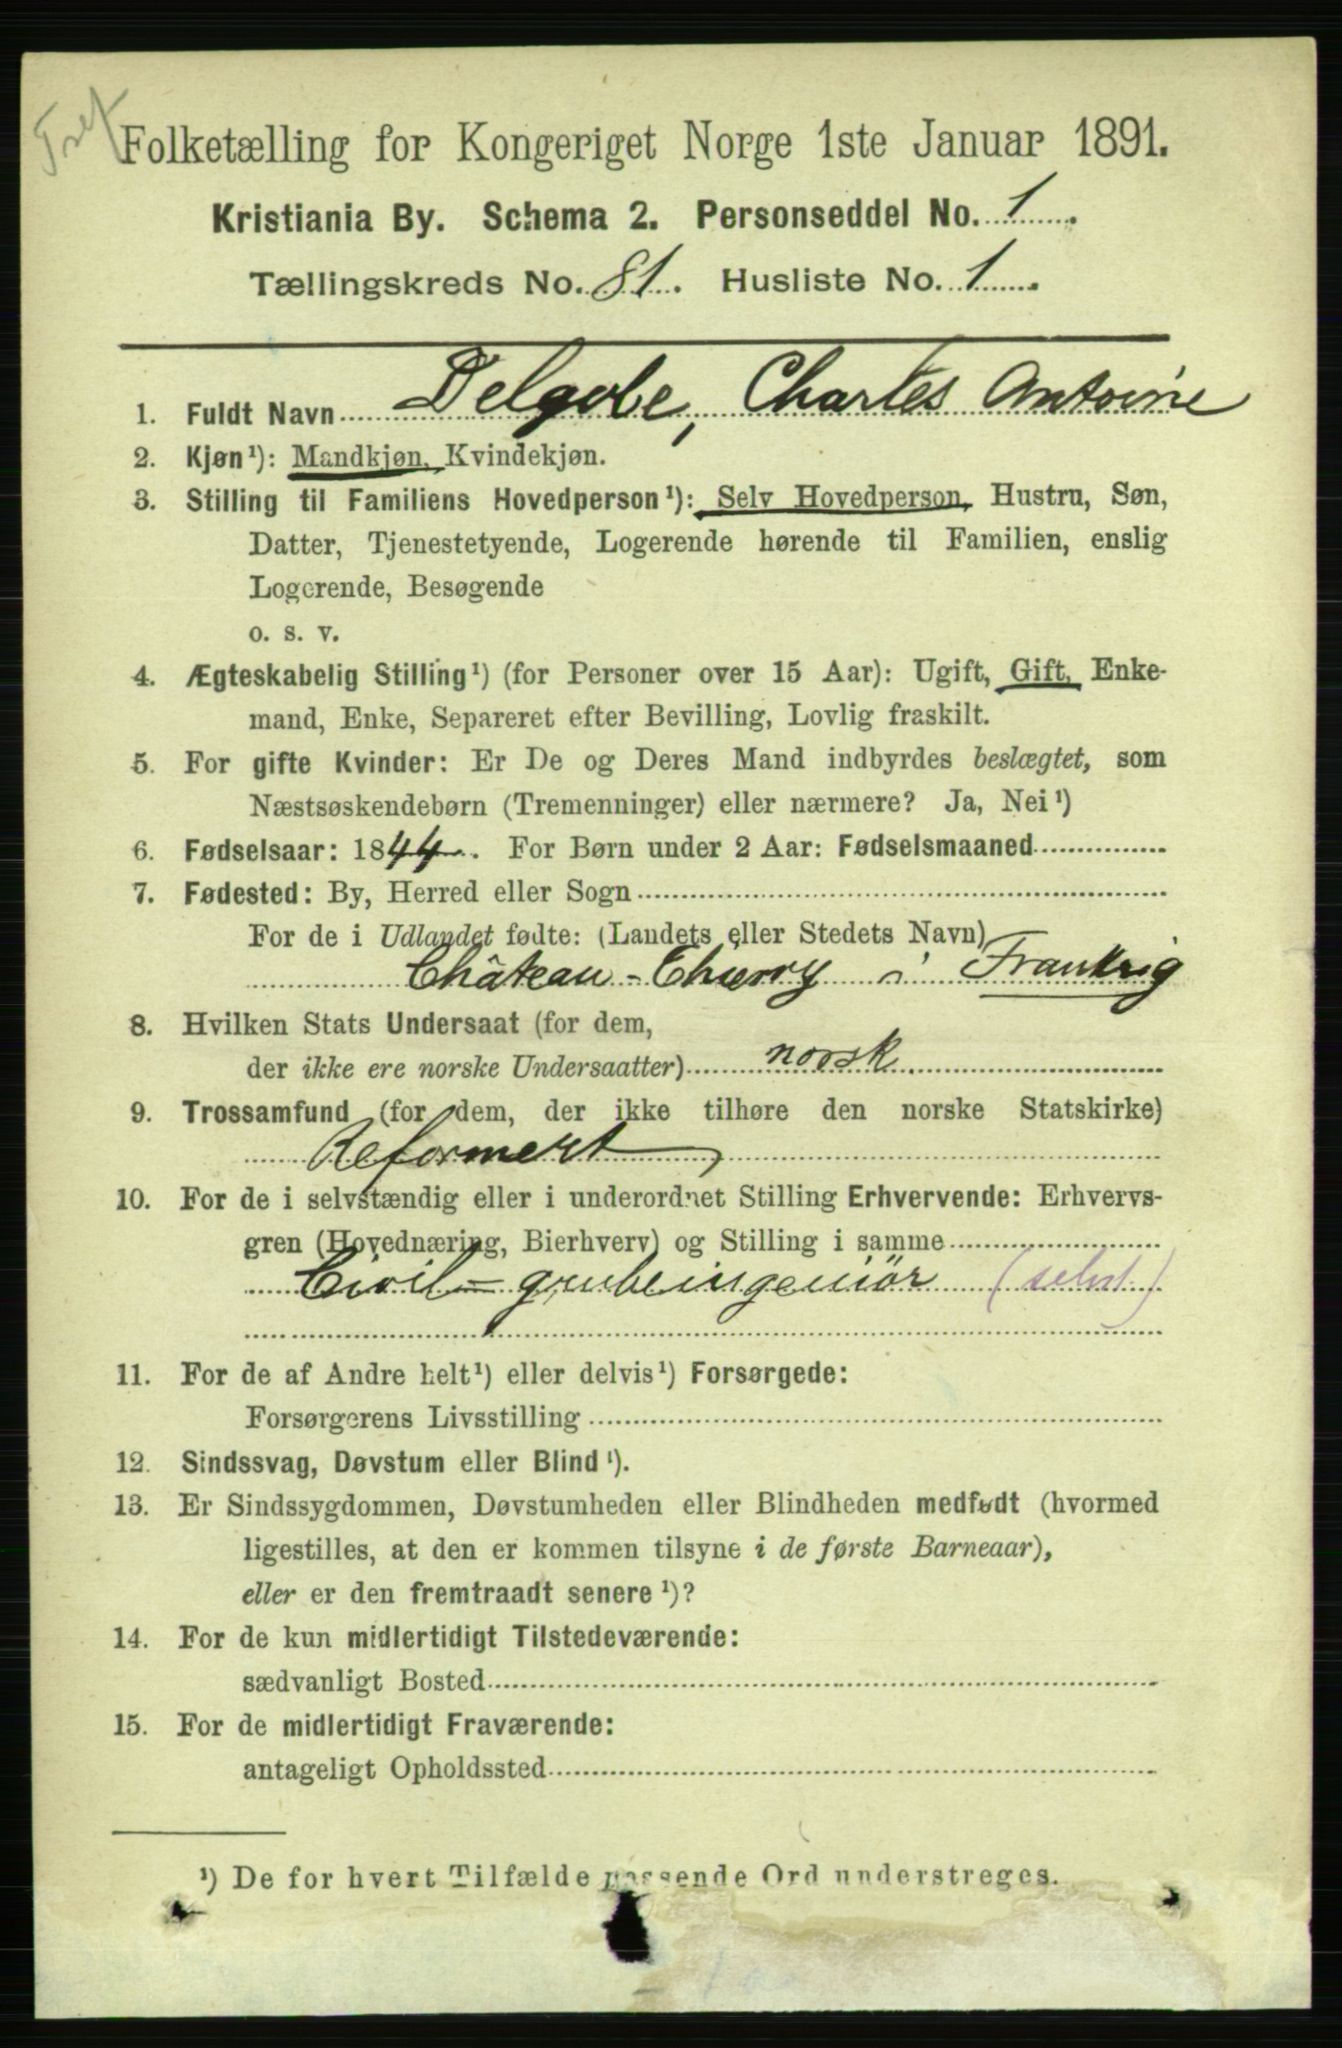 Folketælling for Kongeriget Norge 1ste Januar 1891.
Kristiania By. Schema 2. Personseddel No. 1.
Tællingskreds No. 81. Husliste No. 1.
1. Fuldt Navn Delgobe, Charles Antoine
2. Kjøn¹): Mandkjøn, Kvindekjøn.
3. Stilling til Familiens Hovedperson¹): Selv Hovedperson, Hustru, Søn,
Datter, Tjenestetyende, Logerende hørende til Familien, enslig
Logerende, Besøgende
o. s. v.
4. Ægteskabelig Stilling¹) (for Personer over 15 Aar): Ugift, Gift, Enke-
mand, Enke, Separeret efter Bevilling, Lovlig fraskilt.
5. For gifte Kvinder: Er De og Deres Mand indbyrdes beslægtet, som
Næstsøskendebørn (Tremenninger) eller nærmere? Ja, Nei¹)
6. Fødselsaar: 1844. For Børn under 2 Aar: Fødselsmaaned
7. Fødested: By, Herred eller Sogn
For de i Udlandet fødte: (Landets eller Stedets Navn)
Château-Thierry i Frankrig
8. Hvilken Stats Undersaat (for dem,
der ikke ere norske Undersaatter) norsk.
9. Trossamfund (for dem, der ikke tilhøre den norske Statskirke)
Reformert
10. For de i selvstændig eller i underordnet Stilling Erhvervende: Erhvervs-
gren (Hovednæring, Bierhverv) og Stilling i samme
Civil- grubeingeniör (selvst.)
11. For de af Andre helt¹) eller delvis¹) Forsørgede:
Forsørgerens Livsstilling
12. Sindssvag, Døvstum eller Blind¹).
13. Er Sindssygdommen, Døvstumheden eller Blindheden medfødt (hvormed
ligestilles, at den er kommen tilsyne i de første Barneaar),
eller er den fremtraadt senere¹)?
14. For de kun midlertidigt Tilstedeværende:
sædvanligt Bosted
15. For de midlertidigt Fraværende:
antageligt Opholdssted
¹) De for hvert Tilfælde passende Ord understreges.